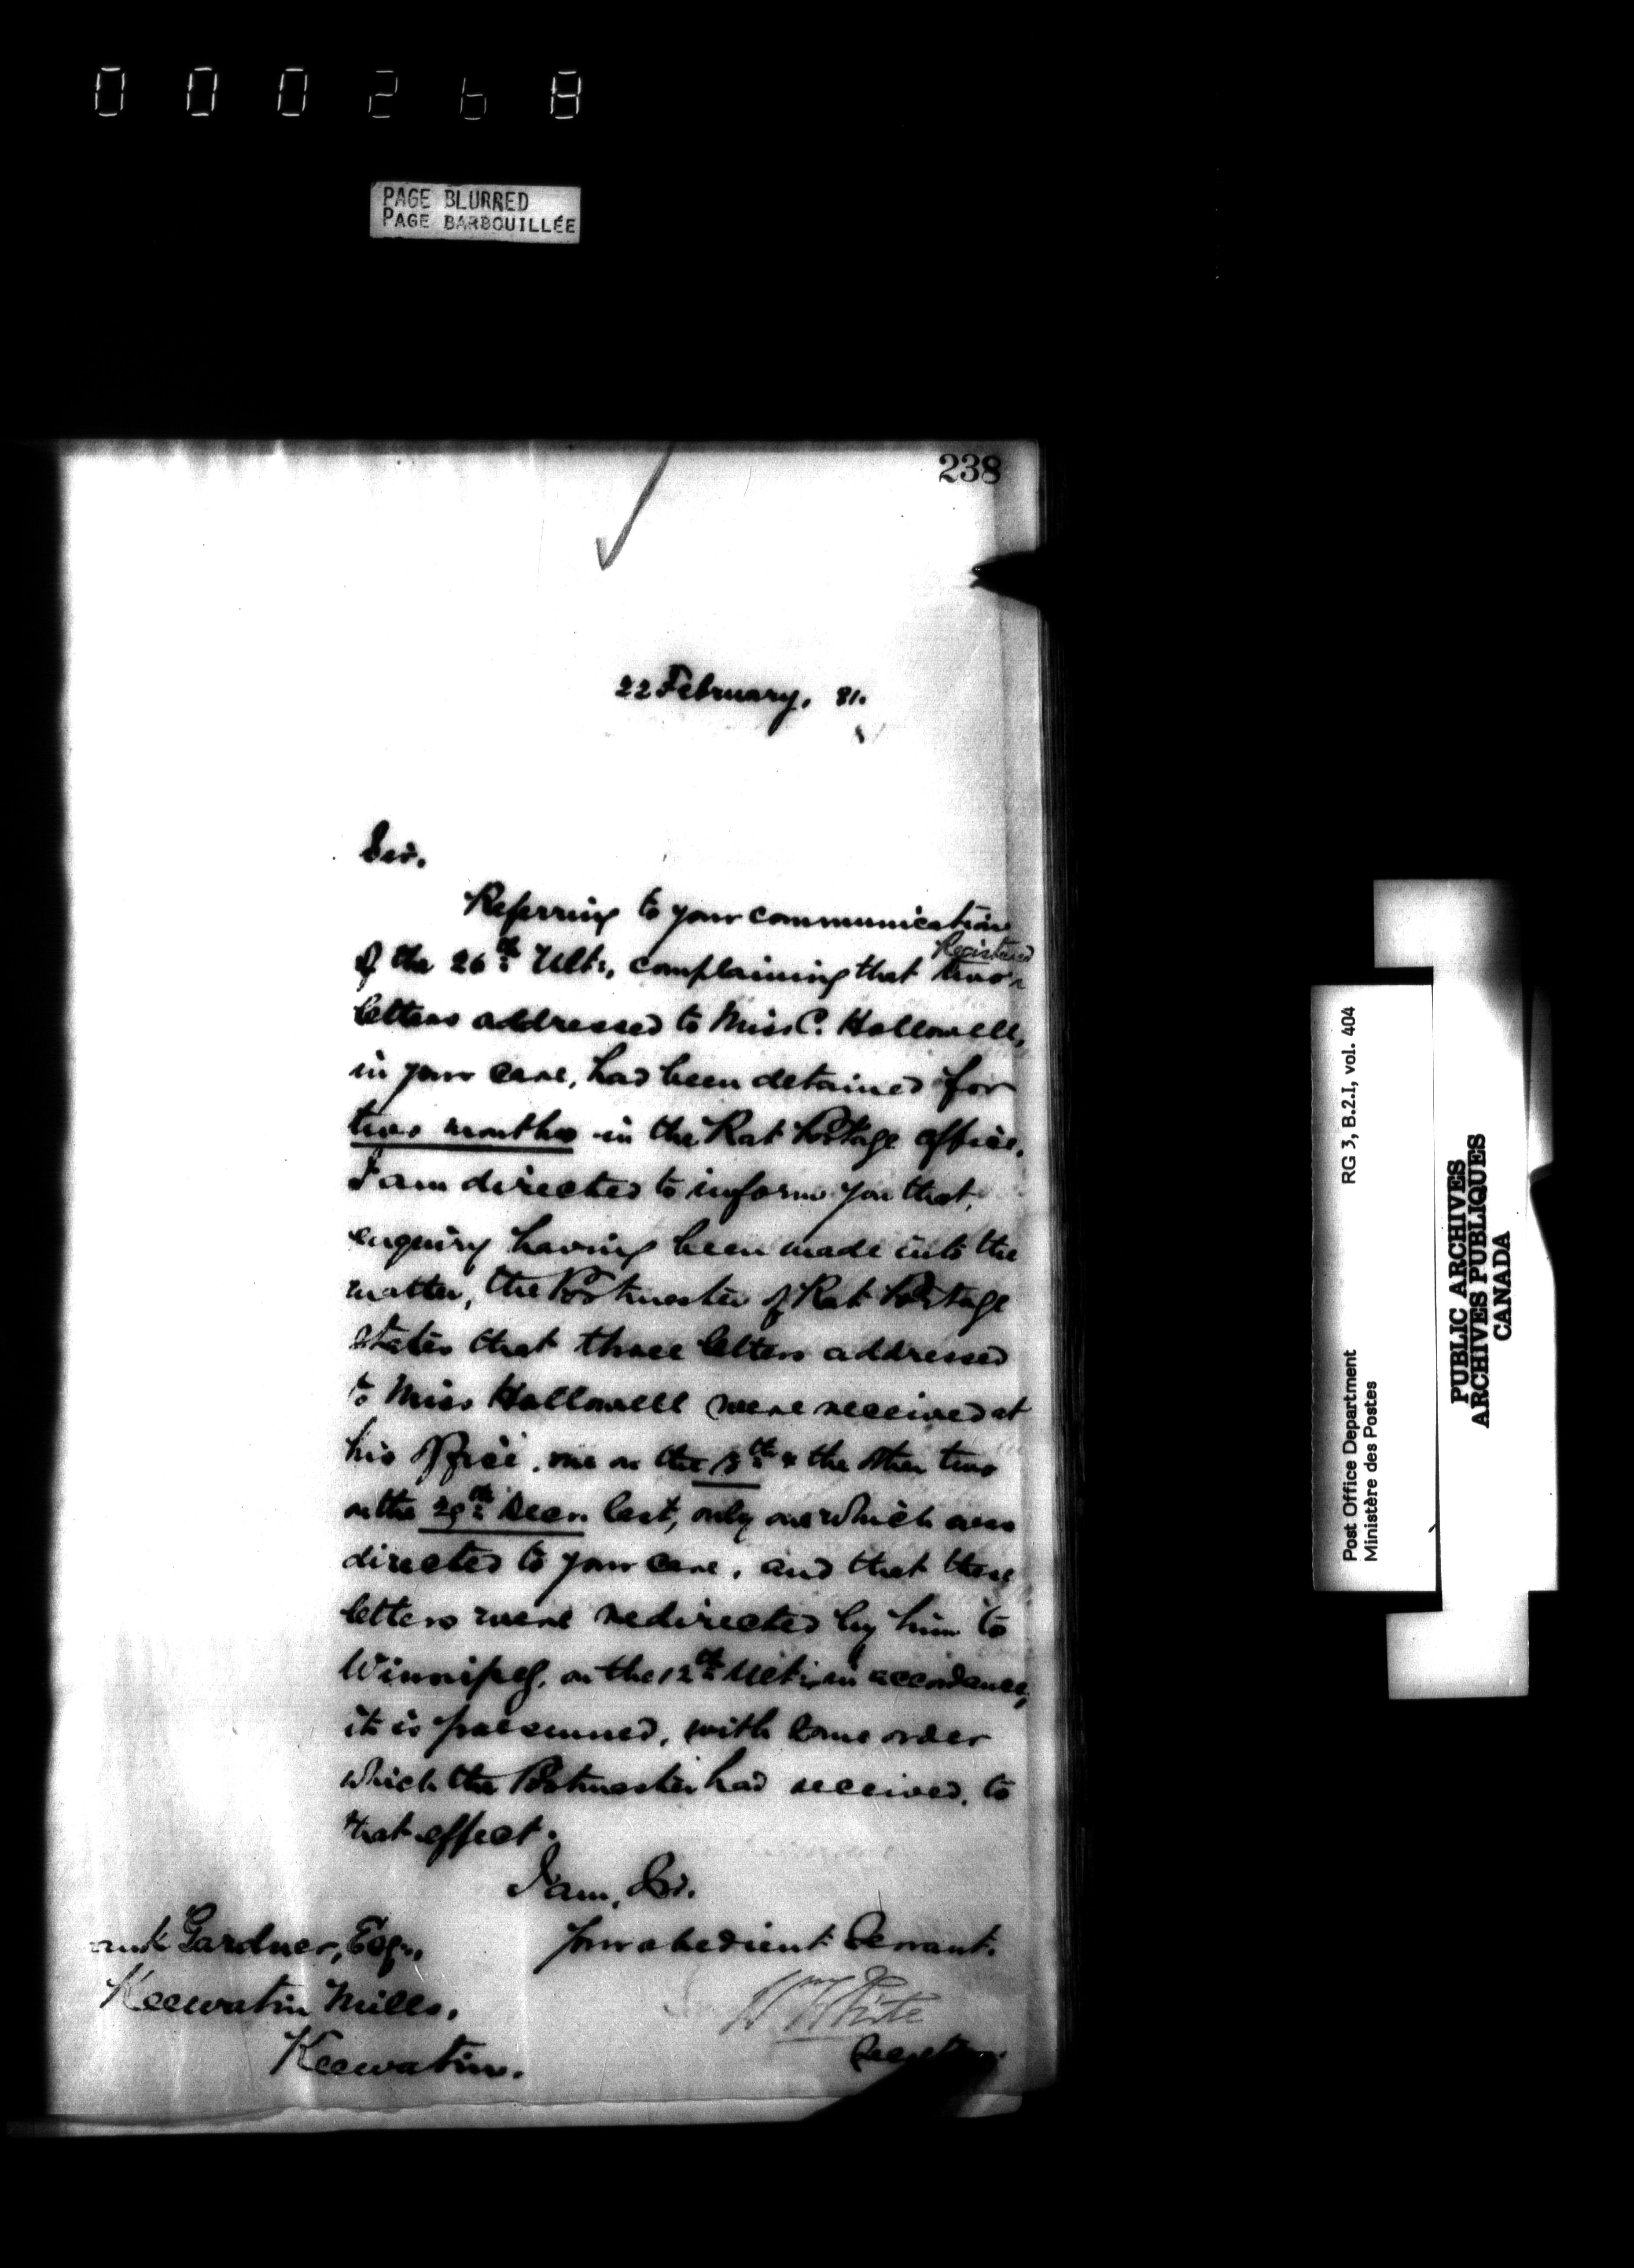 000268
PAGE BLURRED
PAGE BARBOUILLÉE
238
22 February, 81.
Sir.
Referring to your communication
of the 26th Ulto, complaining that two Registered
letters addressed to Miss C. Hallowell,
in your care, had been detained for
two months in the Rat Portage office,
I am directed to inform you that,
enquiry having been made into the
matter, the Postmaster of Rat Portage
states that three letters addressed
to Miss Hallowell were received at
his office, one on the & the other two
on the 29th Decr. last, only one which was
directed to your care, and that these
letters were redirected by him to
Winnipeg, on the 12th Ulto, in accordance,
it is presumed, with some order
which the Postmaster had received, to
that effect.
I am, Sir.
Your obedient Servant.
Wm White
Secretary.
ank Gardner, Esqr,
Keewatin Mills,
Keewatin.
Post Office Department
Ministère des Postes
RG 3, B.2.I, vol. 404
PUBLIC ARCHIVES
ARCHIVES PUBLIQUES
CANADA